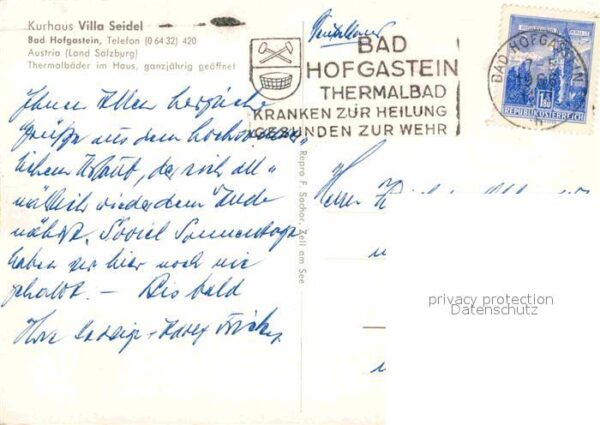 Kurhaus Villa Seidel
Bad Hofgastein, Telefon (0 64 32) 420
Austria (Land Salzburg)
Thermalbäder im Haus, ganzjährig geöffnet
BAD
HOFGASTEIN
THERMALBAD
KRANKEN ZUR HEILUNG
GESUNDEN ZUR WEHR
BAD HOFGASTEIN
REPUBLIK ÖSTERREICH
Ihnen Allen herzliche
Grüße aus dem
Urlaub, der sich all-
mählich wieder dem Ende
nähert. Soviel Sonnentage
haben wir hier noch nie
gehabt. – Bis bald
Ihre
Repro F. Sochor, Zell am See
Herrn
privacy protection
Datenschutz